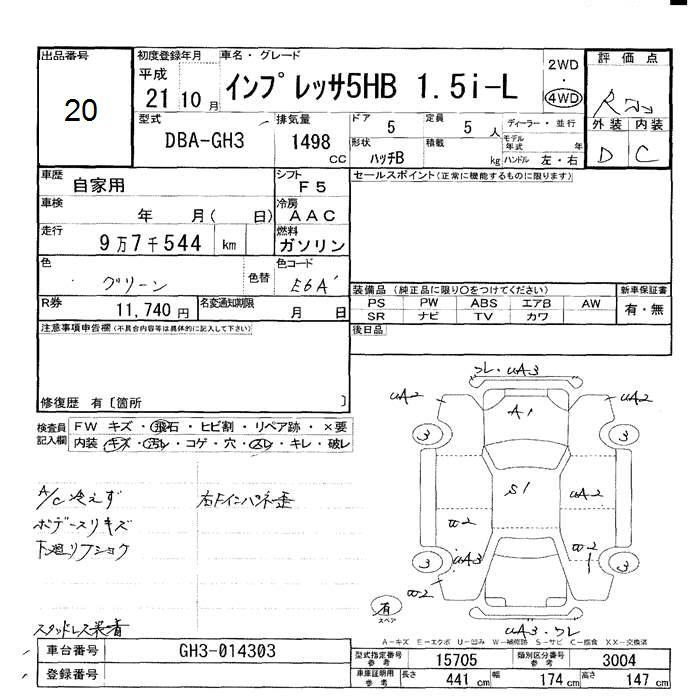 出品番号
20
初度登録年月 車名・グレード
平成
21 10 月 インプレッサ5HB 1.5i-L
2WD
・
4WD
評価点
外装 内装
D C
型式
DBA-GH3
排気量
1498 CC
ドア 5
定員 5 人
ディーラー・並行
形状
ハッチB
積載 kg
モデル年式 年
ハンドル 左・右
車歴
自家用
シフト
F5
セールスポイント(正常に機能するものに限ります)
車検
年 月( 日)
冷房
AAC
走行
9万7千544 km
燃料
ガソリン
色
グリーン
色替
色コード
E6A
R券
11,740 円
名変通知期限
月 日
装備品(純正品に限り○をつけてください)
PS PW ABS エアB AW
SR ナビ TV カワ
新車保証書
有・無
後日品
注意事項申告欄(不具合内容等は具体的に記入して下さい)
修復歴 有〔箇所 〕
検査員記入欄
FW キズ・飛石・ヒビ割・リペア跡・×要
内装 キズ・汚レ・コゲ・穴・スレ・キレ・破レ
A/C冷えず
ボデースリキズ
下廻リフショク
右Fインパネ歪
スタッドレス装着
フレ・uA3
uA2
uA2
A1
3
3
S1
uA2
w2
uA3
w2
3
3
w2
uA3・フレ
有
スペア
A-キズ E-エクボ U-凹み W-補修跡 S-サビ C-腐食 XX-交換済
車台番号 GH3-014303
登録番号
型式指定番号 参考 15705
類別区分番号 参考 3004
車庫証明用 参考 長さ 441 cm 幅 174 cm 高さ 147 cm